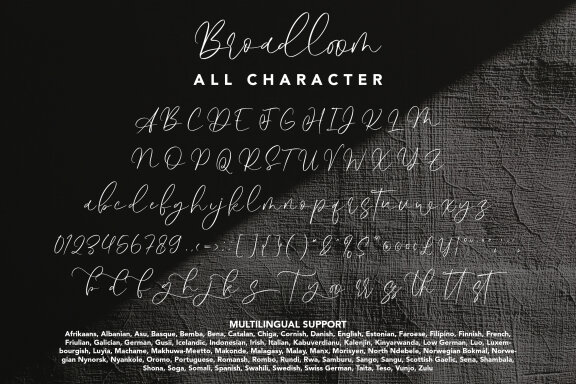 Broadloom
ALL CHARACTER
A B C D E F G H I J K L M
N O P Q R S T U V W X Y Z
a b c d e f g h y j k l m n o p q r s t u v w x y z
0123456789
b d f g h j k s T y o rr ss th tt st
MULTILINGUAL SUPPORT
Afrikaans, Albanian, Asu, Basque, Bemba, Bena, Catalan, Chiga, Cornish, Danish, English, Estonian, Faroese, Filipino, Finnish, French,
Friulian, Galician, German, Gusii, Icelandic, Indonesian, Irish, Italian, Kabuverdianu, Kalenjin, Kinyarwanda, Low German, Luo, Luxem-
bourgish, Luyia, Machame, Makhuwa-Meetto, Makonde, Malagasy, Malay, Manx, Morisyen, North Ndebele, Norwegian Bokmål, Norwe-
gian Nynorsk, Nyankole, Oromo, Portuguese, Romansh, Rombo, Rundi, Rwa, Samburu, Sango, Sangu, Scottish Gaelic, Sena, Shambala,
Shona, Soga, Somali, Spanish, Swahili, Swedish, Swiss German, Taita, Teso, Vunjo, Zulu